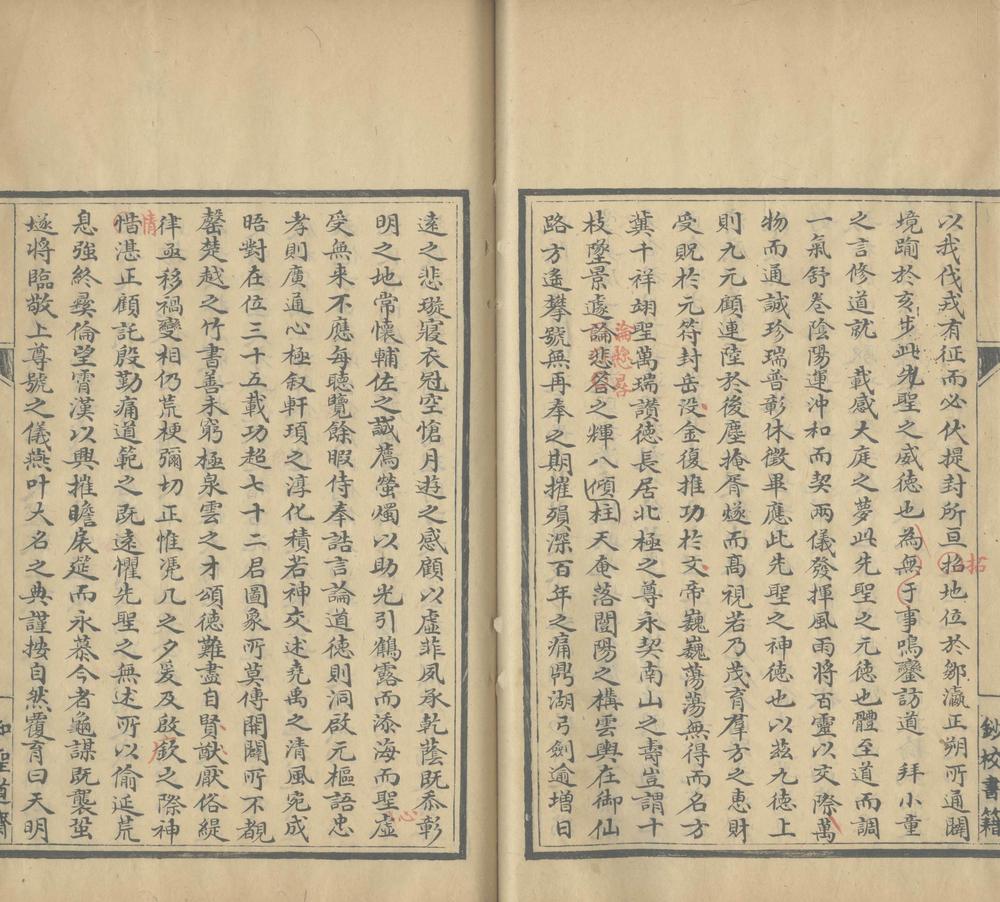 以我伐戎有征而必伏提封所亘招地位於鄒瀛正朔所通闢
拓
境踰於亥步此先聖之威徳也為無于事鳴鑾訪道 拜小童
之言修道訛 載感大庭之夢此先聖之元徳也體至道而調
一氣舒卷陰陽運沖和而契兩儀發揮風雨將百靈以交際萬
物而通誠珍瑞普彰休徴畢應此先聖之神徳也以茲九徳上
則九元顧連陸於後塵掩胥燧而高視若乃茂育羣方之惠財
受貺於元符封岳沒金復推功於文帝巍巍蕩蕩無得而名方
冀千祥翊聖萬瑞讚徳長居北極之尊永契南山之壽豈謂十
枝墜景遽論悲咎之輝八傾柱天奄落閶陽之構雲輿在御仙
淪
晷
路方遙攀號無再奉之期摧殞深百年之痛鼎湖弓劍逾增日
鈔校書籍
遠之悲璇寢衣冠空愴月遊之感顧以虛菲夙承乾蔭既忝彰
明之地常懷輔佐之誠薦螢燭以助光引鶴露而添海而聖虛
心
受無來不應每聽覽餘暇侍奉誥言論道徳則洞啟元樞語忠
孝則廣通心極叙軒頊之淳化積若神交述堯禹之清風宛成
晤對在位三十五載功超七十二君圖象所莫傳開闢所不覩
罄楚越之竹書善未窮極泉雲之才頌徳難盡自賢猷厭俗緹
律亟移禍變相仍荒梗彌切正惟凴几之夕爰及啟欽之際神
情
惜湛正顧託殷勤痛道範之既遠懼先聖之無述所以偷延荒
息強終彛倫望霄漢以興摧瞻扆筵而永慕今者龜謀既襲蛍
燧將臨敬上尊號之儀燕叶大名之典謹按自然覆育曰天明
知聖道齋